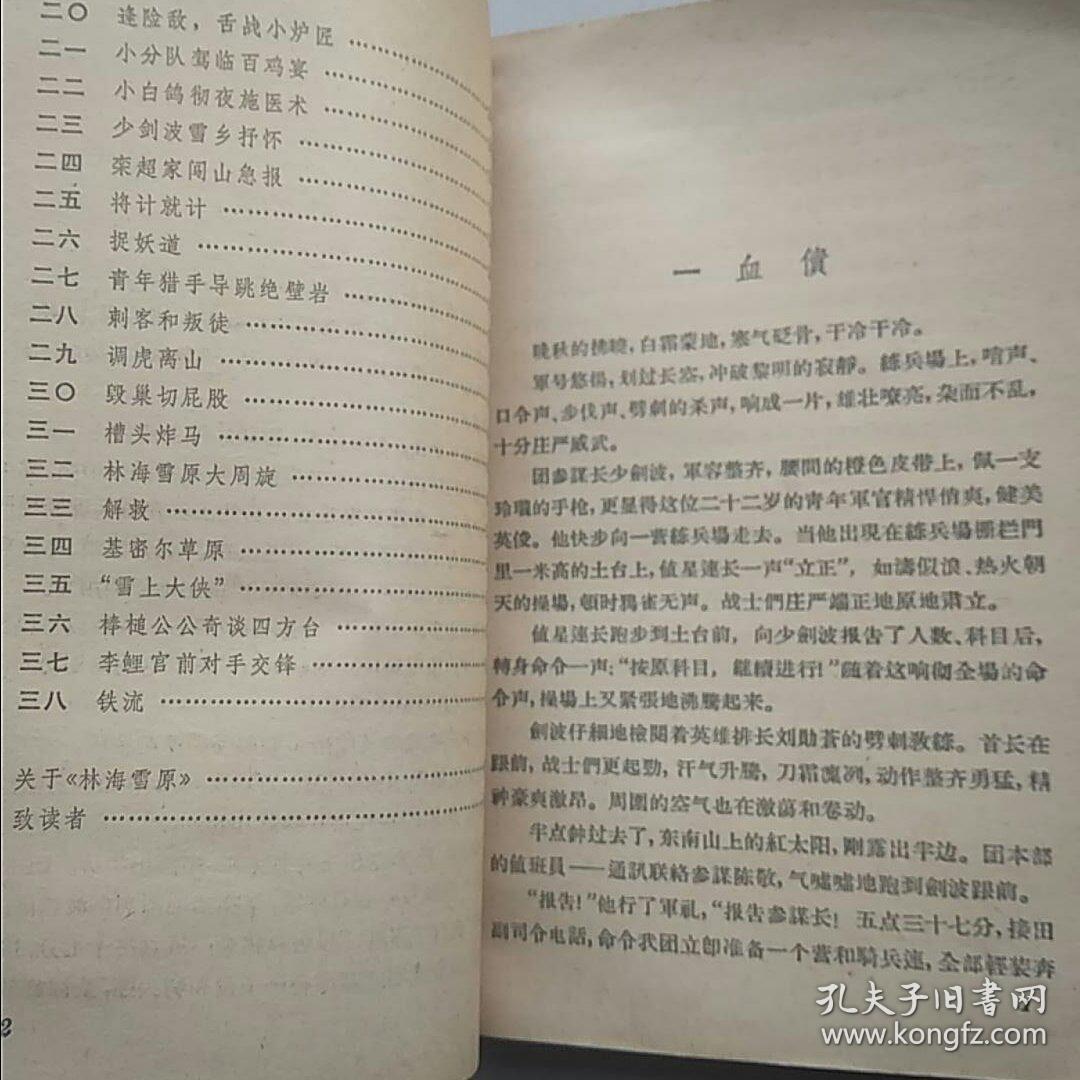 二〇 逢险敌，舌战小炉匠 …………
二一 小分队驾临百鸡宴 …………
二二 小白鸽彻夜施医术 …………
二三 少剑波雪乡抒怀 …………
二四 栾超家闯山急报 …………
二五 将计就计 …………
二六 捉妖道 …………
二七 青年猎手导跳绝壁岩 …………
二八 刺客和叛徒 …………
二九 调虎离山 …………
三〇 毁巢切屁股 …………
三一 槽头炸马 …………
三二 林海雪原大周旋 …………
三三 解救 …………
三四 基密尔草原 …………
三五 “雪上大侠” …………
三六 棒槌公公奇谈四方台 …………
三七 李鲤官前对手交锋 …………
三八 铁流 …………
关于《林海雪原》 …………
致读者 …………
2
一 血債
晚秋的拂曉，白霜蒙地，寒气砭骨，干冷干冷。
軍号悠揚，划过长空，冲破黎明的寂靜。練兵場上，哨声、
口令声、步伐声、劈刺的杀声，响成一片，雄壮嘹亮，杂而不乱，
十分庄严威武。
团参謀长少劍波，軍容整齐，腰間的橙色皮带上，佩一支
玲瓏的手枪，更显得这位二十二岁的青年軍官精悍俏爽，健美
英俊。他快步向一营練兵場走去。当他出現在練兵場栅栏門
里一米高的土台上，值星連长一声“立正”，如濤似浪、热火朝
天的操場，頓时鴉雀无声。战士們庄严端正地原地肃立。
值星連长跑步到土台前，向少劍波报告了人数、科目后，
轉身命令一声：“按原科目，継續进行！”随着这响彻全場的命
令声，操場上又緊張地沸騰起来。
劍波仔細地檢閱着英雄排长刘勛蒼的劈刺教練。首长在
跟前，战士們更起勁，汗气升騰，刀霜凜冽，动作整齐勇猛，精
神豪爽激昂。周圍的空气也在激蕩和卷动。
半点鈡过去了，东南山上的紅太阳，剛露出半边。团本部
的值班員——通訊联絡参謀陈敬，气嘘嘘地跑到劍波跟前。
“报告！”他行了軍礼，“报告参謀长！五点三十七分，接田
副司令电話，命令我团立卽准备一个营和騎兵連，全部輕装奔
1
孔夫子旧書网
www.kongfz.com